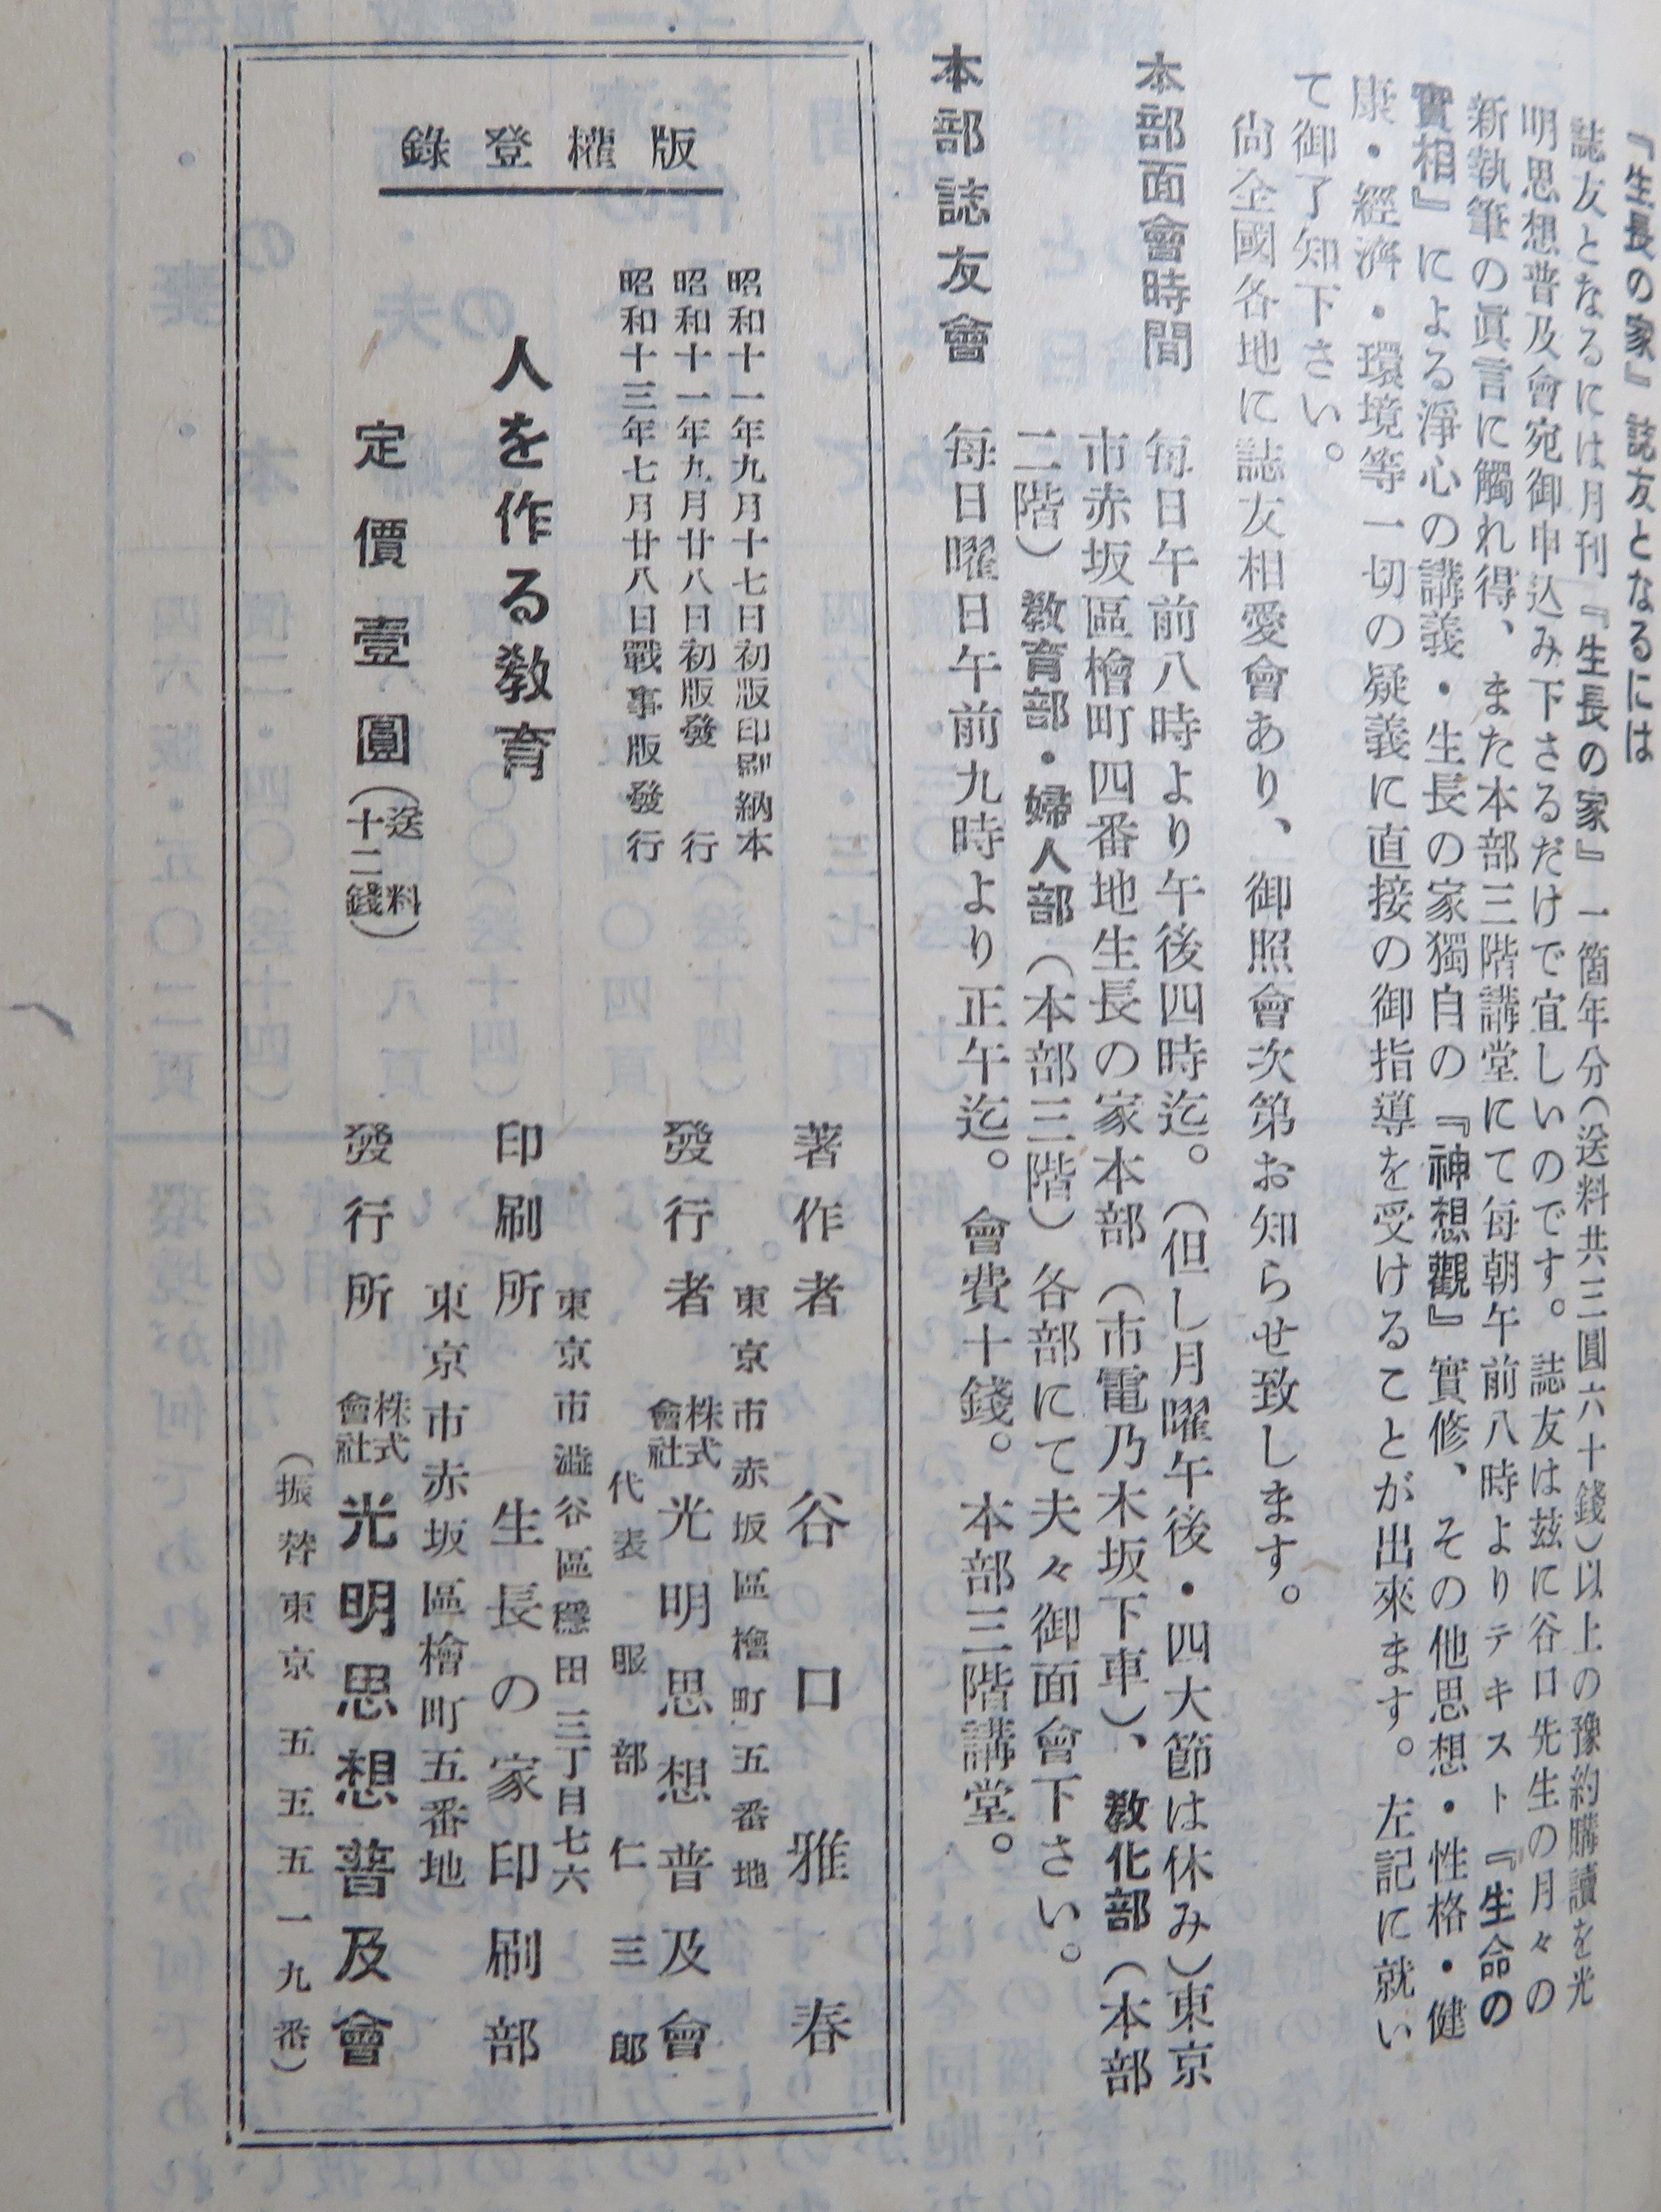 『生長の家』誌友となるには
誌友となるには月刊『生長の家』一箇年分(送料共三圓六十錢)以上の豫約購讀を光
明思想普及會宛御申込み下さるだけで宜しいのです。誌友は玆に谷口先生の月々の
新執筆の眞言に觸れ得、また本部三階講堂にて每朝午前八時よりテキスト『生命の
實相』による淨心の講義・生長の家獨自の『神想觀』實修、その他思想・性格・健
康・經濟・環境等一切の疑義に直接の御指導を受けることが出來ます。左記に就い
て御了知下さい。
尙全國各地に誌友相愛會あり、御照會次第お知らせ致します。
本部面會時間 每日午前八時より午後四時迄。(但し月曜午後・四大節は休み)東京
市赤坂區檜町四番地生長の家本部(市電乃木坂下車)、敎化部(本部
二階)敎育部・婦人部(本部三階)各部にて夫々御面會下さい。
本部誌友會 每日曜日午前九時より正午迄。會費十錢。本部三階講堂。
版權登錄
昭和十一年九月十七日初版印刷納本
昭和十一年九月廿八日初版發行
昭和十三年七月廿八日戰事版發行
人を作る敎育
定價壹圓(送料十二錢)
著作者 谷口雅春
東京市赤坂區檜町五番地
發行者 株式會社光明思想普及會
代表 服部仁三郎
東京市澁谷區穩田三丁目七六
印刷所 生長の家印刷部
東京市赤坂區檜町五番地
發行所 株式會社光明思想普及會
(振替東京五五五一九番)